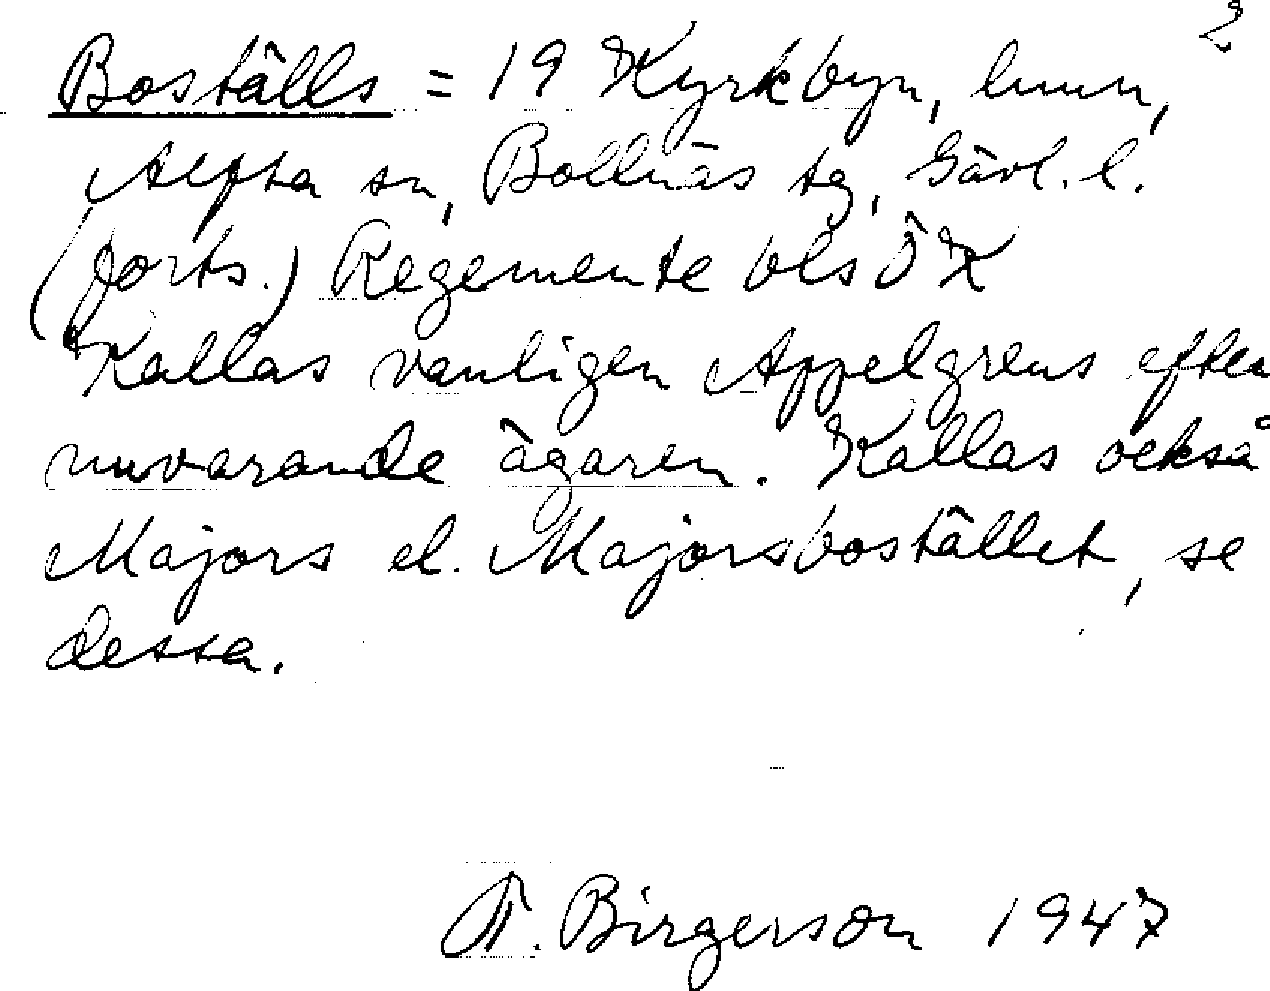 2
Boställs = 19 Kyrkbyn, hmn,
Alfta sn, Bollnäs tg, Gävl. l.
(forts.) Regemente ÖK
Kallas vanligen Appelgrens efter
nuvarande ägaren. Kallas också
Majors el. Majorsbostället, se
dessa.
Birgerson 1947